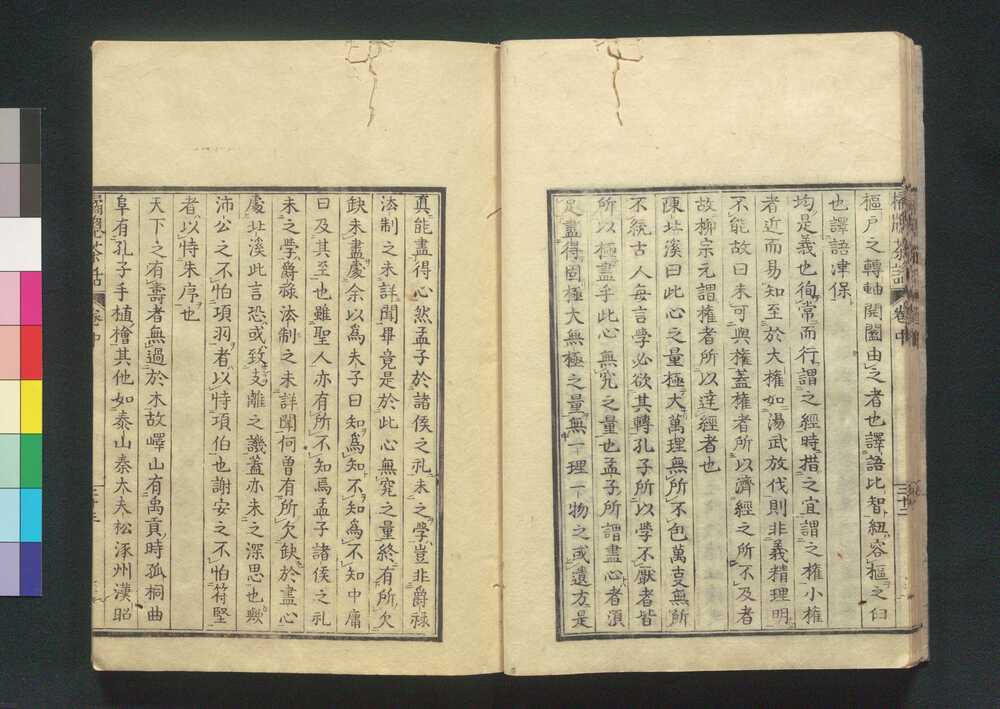 橘牕茶話 卷中 三十二
樞戶之轉軸開闔由之者也譯語比智紐容樞之臼
也譯語津保
均是義也徇常而行謂之經時措之宜謂之權小權
者近而易知至於大權如湯武放伐則非義精理明
不能故曰未可與權蓋權者所以濟經之所不及者
故柳宗元謂權者所以達經者也
陳北溪曰此心之量極大萬理無所不包萬事無所
不統古人每言學必欲其轉孔子所以學不厭者皆
所以極盡乎此心無窮之量也孟子所謂盡心者須
是盡得固極大無極之量無一理一物之或遺方是
真能盡得心然孟子於諸侯之礼未之學豈非爵祿
法制之未詳聞畢竟是於此心無窮之量終有所欠
缺未盡處余以為夫子曰知為知不知為不知中庸
曰及其至也雖聖人亦有所不知焉孟子諸侯之礼
未之學爵祿法制之未詳聞何曾有所欠缺於盡心
處北溪此言恐或致支離之譏蓋亦未之深思也歟
沛公之不怕項羽者以恃項伯也謝安之不怕符堅
者以恃朱序也
天下之有壽者無過於木故嶧山有禹貢時孤桐曲
阜有孔子手植檜其他如泰山泰大夫松涿州漢昭
橘牕茶話 卷中